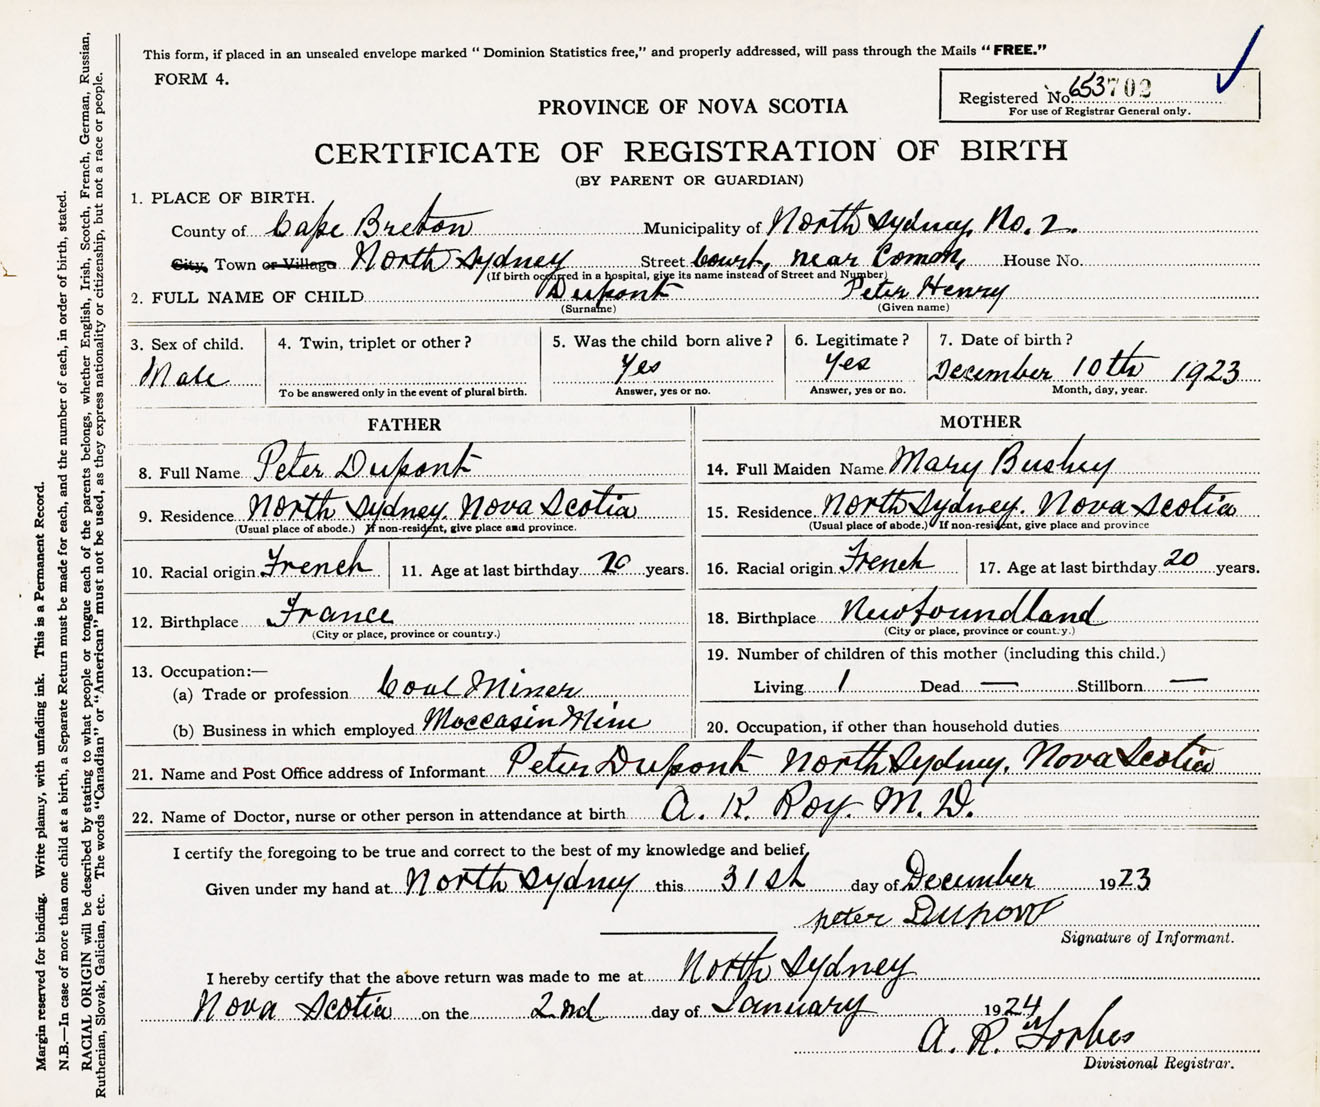 This form, if placed in an unsealed envelope marked "Dominion Statistics free," and properly addressed, will pass through the Mails "FREE."
FORM 4.
Registered No. 653702
For use of Registrar General only.
PROVINCE OF NOVA SCOTIA
CERTIFICATE OF REGISTRATION OF BIRTH
(BY PARENT OR GUARDIAN)
1. PLACE OF BIRTH.
County of Cape Breton Municipality of North Sydney, No. 2.
City, Town or Village North Sydney Street Court, near Common, House No.
(If birth occurred in a hospital, give its name instead of Street and Number)
2. FULL NAME OF CHILD Dupont Peter Henry
(Surname) (Given name)
3. Sex of child. 4. Twin, triplet or other? 5. Was the child born alive? 6. Legitimate? 7. Date of birth?
Male Yes Yes December 10th 1923
To be answered only in the event of plural birth. Answer, yes or no. Answer, yes or no. Month, day, year.
FATHER MOTHER
8. Full Name Peter Dupont 14. Full Maiden Name Mary Bushey
9. Residence North Sydney, Nova Scotia 15. Residence North Sydney. Nova Scotia
(Usual place of abode.) If non-resident, give place and province. (Usual place of abode.) If non-resident, give place and province
10. Racial origin French 11. Age at last birthday years. 16. Racial origin French 17. Age at last birthday 20 years.
12. Birthplace France 18. Birthplace Newfoundland
(City or place, province or country.) (City or place, province or country.)
13. Occupation:— 19. Number of children of this mother (including this child.)
(a) Trade or profession Coal Miner Living 1 Dead — Stillborn —
(b) Business in which employed Moccasin Mine 20. Occupation, if other than household duties
21. Name and Post Office address of Informant Peter Dupont North Sydney, Nova Scotia
22. Name of Doctor, nurse or other person in attendance at birth A. K. Roy. M. D.
I certify the foregoing to be true and correct to the best of my knowledge and belief.
Given under my hand at North Sydney this 31st day of December 1923
Peter Dupont
Signature of Informant.
I hereby certify that the above return was made to me at North Sydney
Nova Scotia on the 2nd day of January 1924
A. R. Forbes
Divisional Registrar.
Margin reserved for binding. Write plainly, with unfading ink. This is a Permanent Record.
N.B.—In case of more than one child at a birth, a Separate Return must be made for each, and the number of each, in order of birth, stated.
RACIAL ORIGIN will be described by stating to what people or tongue each of the parents belongs, whether English, Irish, Scotch, French, German, Russian,
Ruthenian, Slovak, Galician, etc. The words "Canadian" or "American" must not be used, as they express nationality or citizenship, but not a race or people.